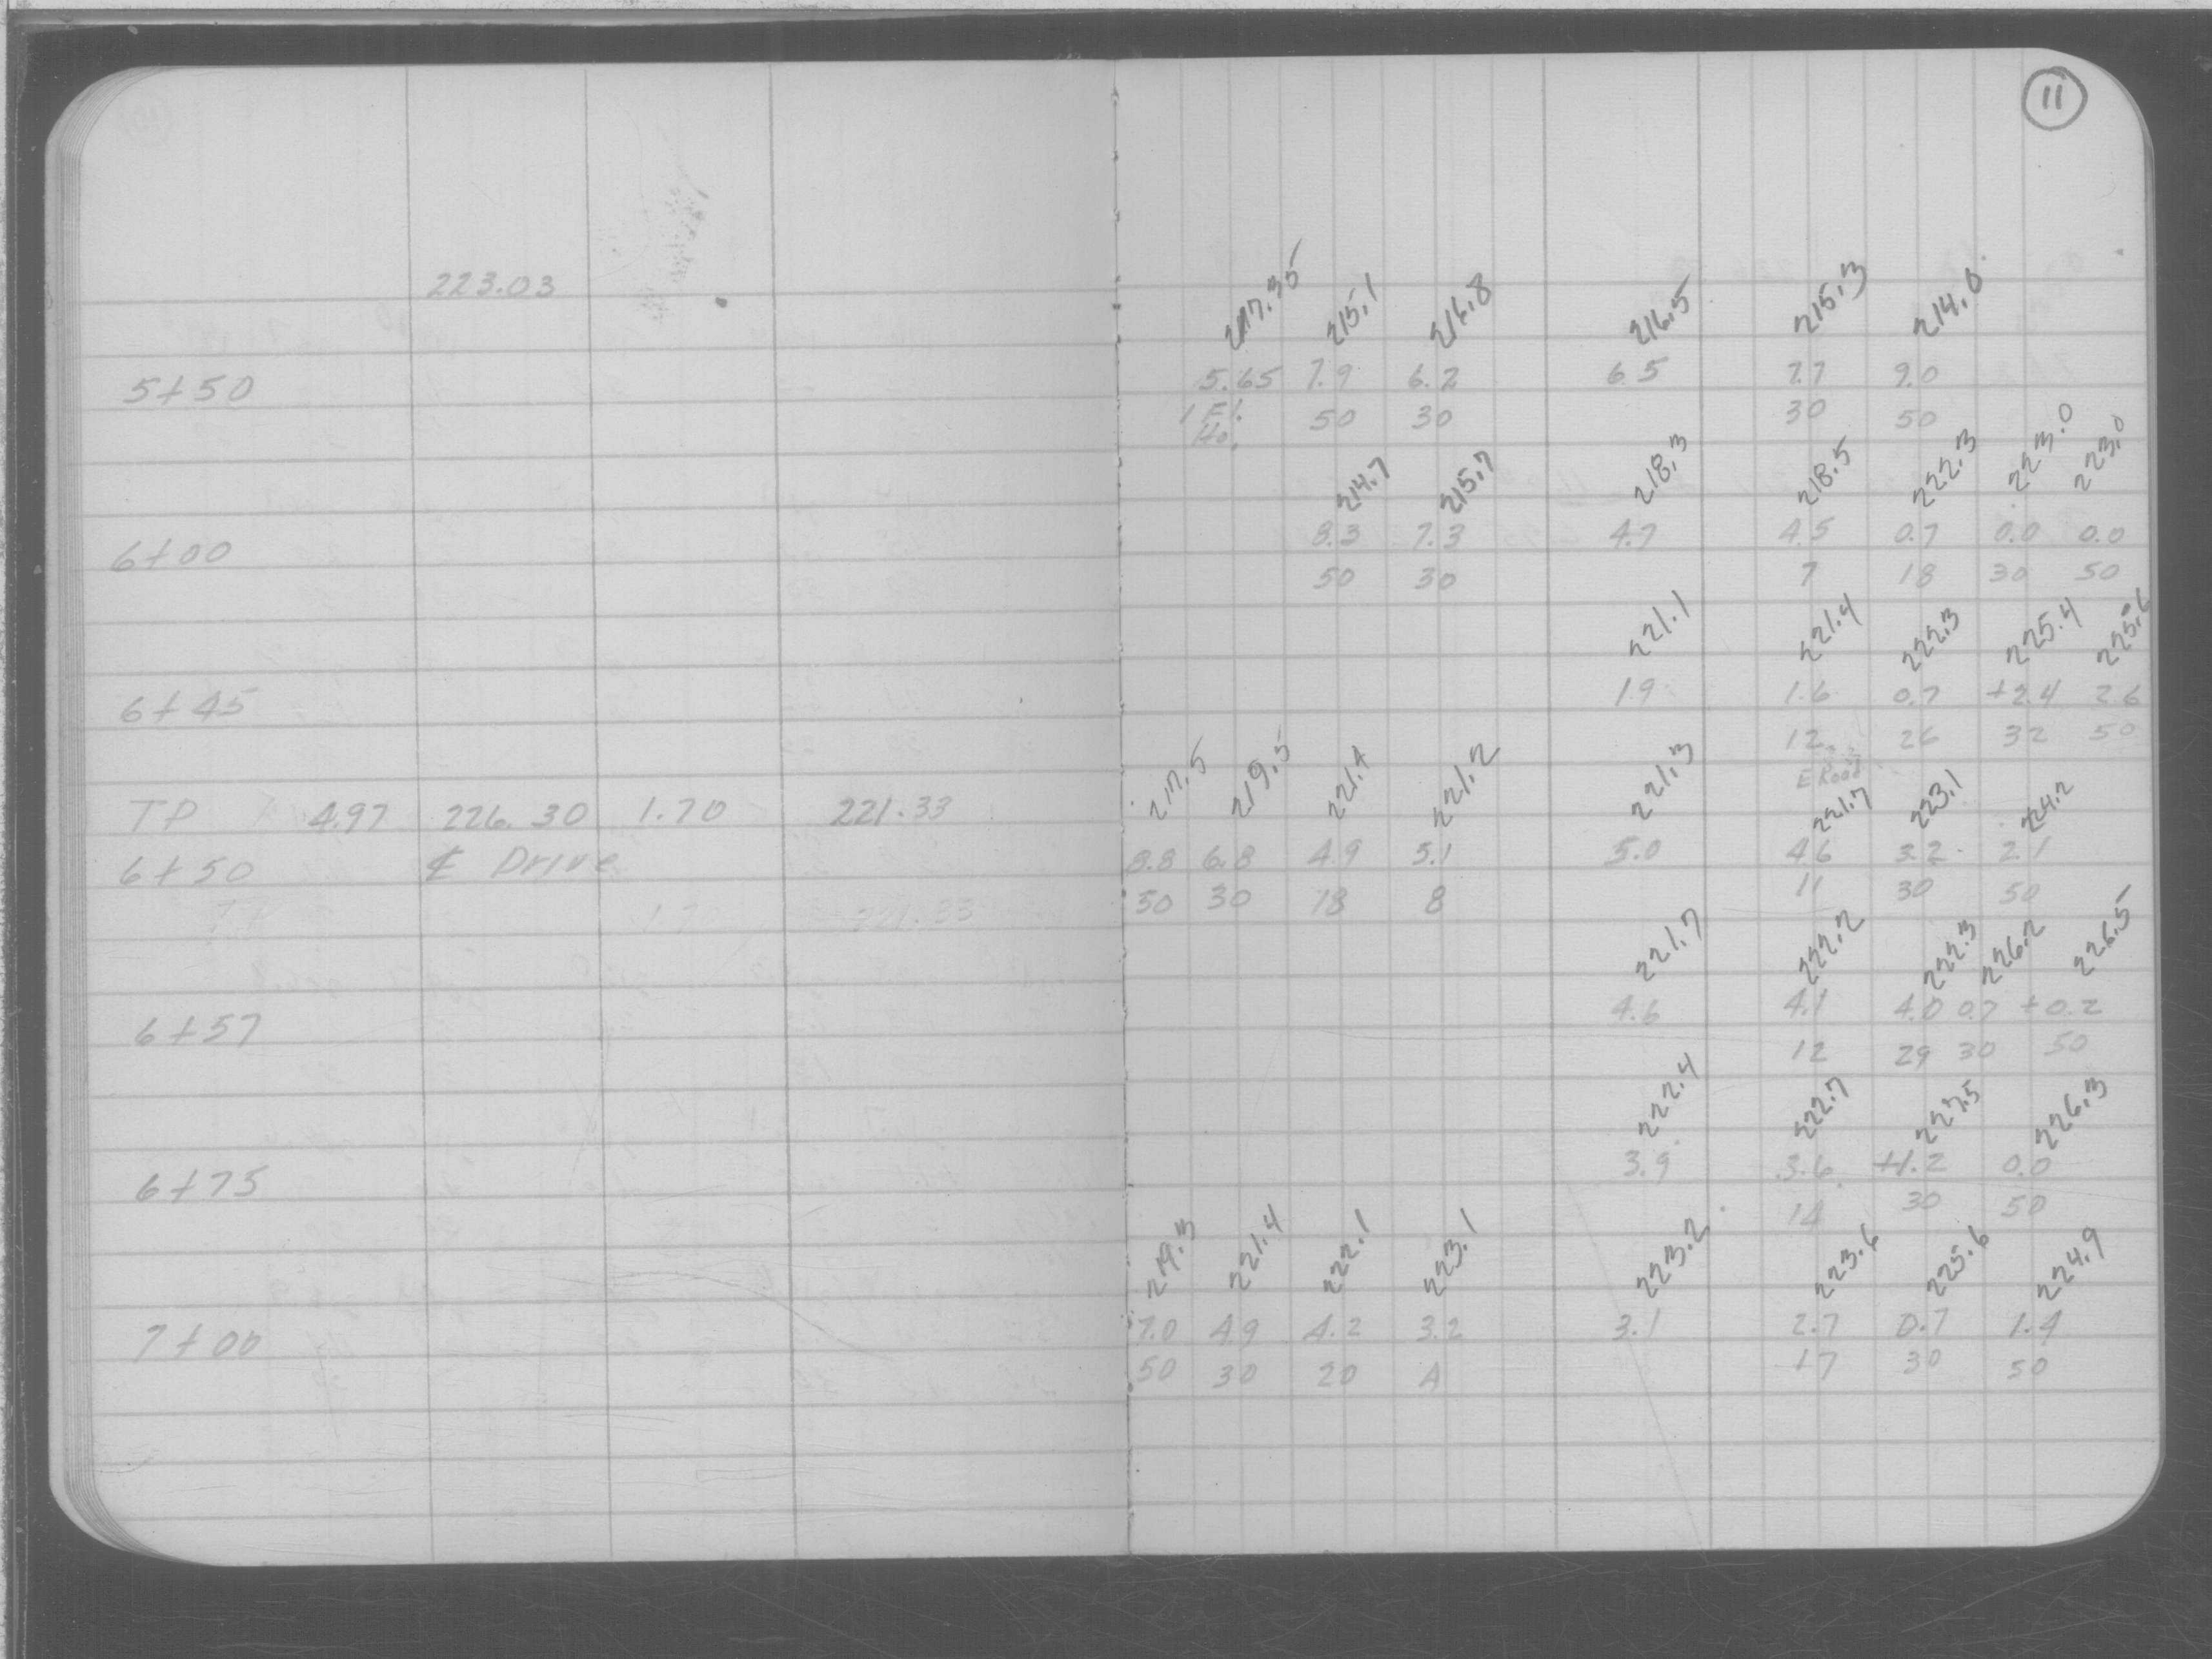 11
223.03
217.35 215.1 216.8 216.5 215.3 214.0
5+50 5.65 7.9 6.2 6.5 7.7 9.0
1 Fl. 50 30 30 50
Ho.
214.7 215.7 218.3 218.5 222.3 223.0 223.0
6+00 8.3 7.3 4.7 4.5 0.7 0.0 0.0
50 30 7 18 30 50
221.1 221.4 222.3 225.4 225.6
6+45 1.9 1.6 0.7 +2.4 2.6
12 26 32 50
E Road
217.5 219.5 221.4 221.2 221.3 221.7 223.1 224.2
TP 4.97 226.30 1.70 221.33
6+50 ₵ Drive 8.8 6.8 4.9 5.1 5.0 4.6 3.2 2.1
TP 1.7 221.33 50 30 18 8 11 30 50
221.7 222.2 222.3 226.2 226.5
6+57 4.6 4.1 4.0 0.7 +0.2
12 29 30 50
222.4 222.7 227.5 226.3
6+75 3.9 3.6 +1.2 0.0
14 30 50
219.3 221.4 222.1 223.1 223.2 223.6 225.6 224.9
7+00 7.0 4.9 4.2 3.2 3.1 2.7 0.7 1.4
50 30 20 4 17 30 50